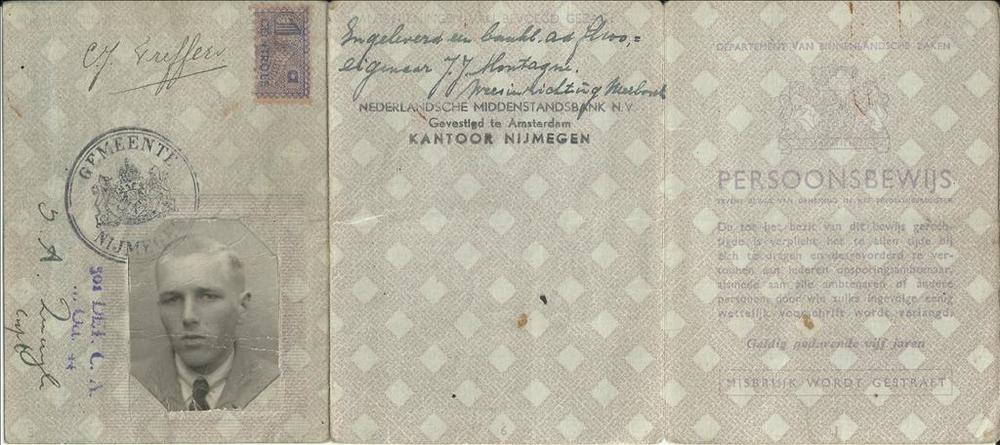 C.J. Treffers
CONTROLE
1
GEMEENTE
NIJMEGEN
301 Det. C. A.
J. A.
Capt
een bankb. ad f
eigenaar J.J. Montagne.
NEDERLANDSCHE MIDDENSTANDSBANK N.V.
Gevestigd te Amsterdam
KANTOOR NIJMEGEN
6
DEPARTEMENT VAN BINNENLANDSCHE ZAKEN
PERSOONSBEWIJS
TEVENS BEWIJS VAN OPNEMING IN HET PERSOONSREGISTER
De tot het bezit van dit bewijs gerech-
tigde is verplicht het te allen tijde bij
zich te dragen en desgevorderd te ver-
toonen aan iederen opsporingsambtenaar,
alsmede aan alle ambtenaren of andere
personen, door wie zulks ingevolge eenig
wettelijk voorschrift wordt verlangd.
Geldig gedurende vijf jaren
MISBRUIK WORDT GESTRAFT
1